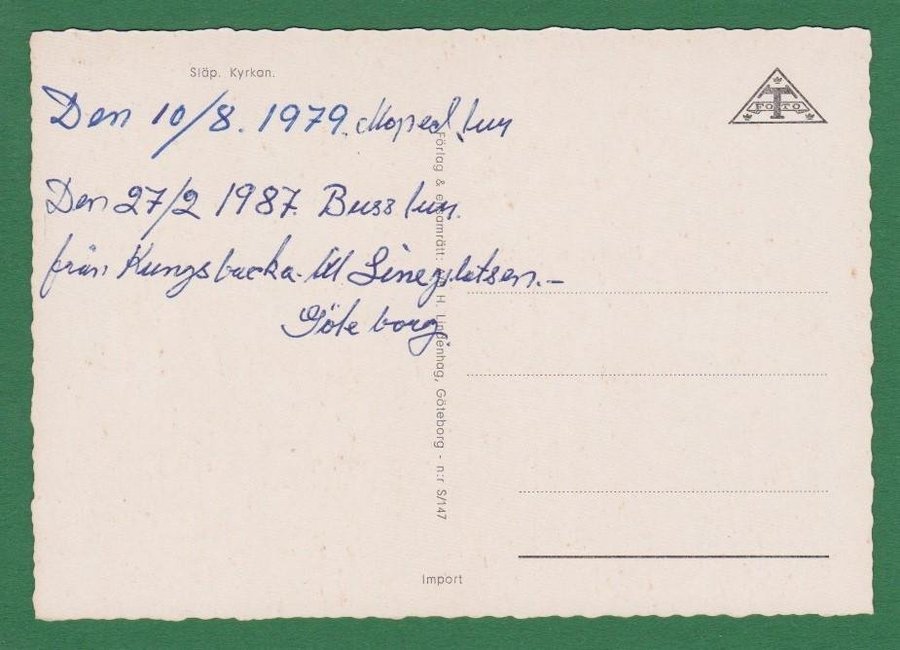 Släp. Kyrkan.
Den 10/8. 1979. Moped tur
Den 27/2 1987. Buss tur.
från Kungsbacka till Linneplatsen.-
Göteborg.
FOTO
Förlag & ensamrätt: H. Lindenhag, Göteborg - n:r S/147
Import